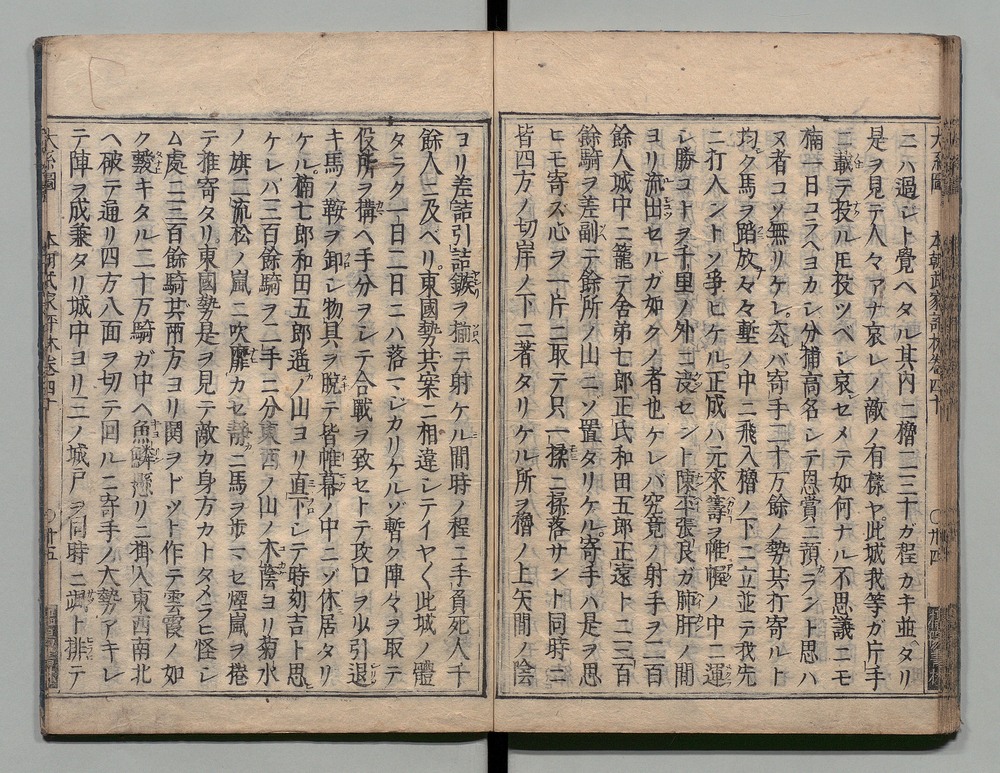 ニハ過ジト覺ヘタル其內ニ櫓二三十ガ程カキ並ベタリ
是ヲ見テ人々アナ哀レノ敵ノ有樣ヤ此城我等ガ片手
ニ載テ投ルトモ投ツベシ哀セメテ如何ナル不思議ニモ
楠一日コラヘヨカシ分捕高名シテ恩賞ニ預ラント思ハ
ヌ者コソ無リケレ。去バ寄手三十万餘ノ勢共打寄ルト
均ク馬ヲ蹈放々々塹ノ中ニ飛入櫓ノ下ニ立並テ我先
ニ打入ントゾ爭ヒケル。正成ハ元來籌ヲ帷幄ノ中ニ運
シ勝コトヲ千里ノ外ニ決セント陳平張良ガ肺肝ノ間
ヨリ流出セルガ如クノ者也ケレバ究竟ノ射手ヲ二百
餘人城中ニ籠テ舍弟七郎正氏和田五郎正遠ト二三百
餘騎ヲ差副テ餘所ノ山ニゾ置タリケル。寄手ハ是ヲ思
ヒモ寄ズ心ヲ一片ニ取テ只一揉ニ揉落サント同時ニ
皆四方ノ切岸ノ下ニ著タリケル所ヲ櫓ノ上矢間ノ陰
ヨリ差詰引詰鏃ヲ揃テ射ケル間時ノ程ニ手負死人千
餘人ニ及ベリ。東國勢共案ニ相違シテイヤ〱此城ノ體
タラク一日二日ニハ落マジカリケルゾ暫ク陣々ヲ取テ
役所ヲ構ヘ手分ヲシテ合戰ヲ致セトテ攻口ヲ少引退
キ馬ノ鞍ヲ卸シ物具ヲ脫テ皆帷幕ノ中ニゾ休居タリ
ケル。楠七郎和田五郎遙ノ山ヨリ直下シテ時刻吉ト思
ケレバ三百餘騎ヲ二手ニ分東西ノ山ノ木陰ヨリ菊水
ノ旗二流松ノ嵐ニ吹靡カセ靜ニ馬ヲ步マセ煙嵐ヲ捲
テ推寄タリ。東國勢是ヲ見テ敵カ身方カトタメラヒ怪シ
ム處ニ三百餘騎其兩方ヨリ鬨ヲドット作テ雲霞ノ如
ク靉キタル三十万騎ガ中ヘ魚鱗懸リニ掛入東西南北
ヘ破テ通リ四方八面ヲ切テ回ルニ寄手ノ大勢アキレ
テ陣ヲ成兼タリ城中ヨリ三ノ城戶ヲ同時ニ颯ト排テ